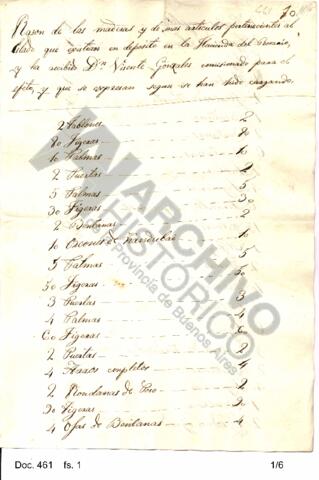 70
Rason de las maderas, y demas articulos pertenecientes al
Estado que existian en deposito en la Hacienda del Rosario,
y ha recibido Dn. Vicente Gonzales comisionado para el
efto, y que se espresan segun se han hido cargando.
2 Tablones 2
20 Tigeras 20
10 Palmas 10
2 Puertas 2
5 Palmas 5
30 Tigeras 30
2 Bentanas 2
10 10
5 Palmas 5
30 Tigeras 30
3 Puertas 3
4 Palmas 4
60 Tigeras 60
2 Puertas 2
4 completos 4
2 Rondanas de Poso 2
30 Tigeras 30
4 Ojas de Bentanas 4
ARCHIVO
HISTORICO
Provincia de Buenos Aires
Doc. 461 fs. 1 1/6